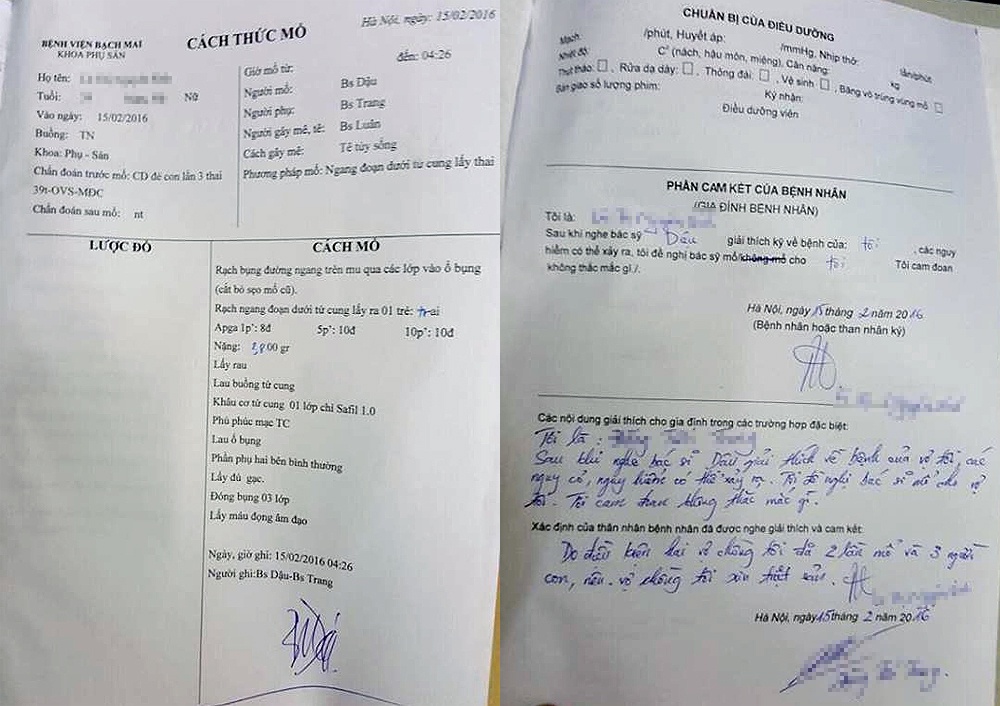 Hà Nội, ngày: 15/02/2016
BỆNH VIỆN BẠCH MAI
KHOA PHỤ SẢN
CÁCH THỨC MỔ
Họ tên:
Tuổi: Nữ
Vào ngày: 15/02/2016
Buồng: TN
Khoa: Phụ - Sản
Chẩn đoán trước mổ: CD đẻ con lần 3 thai
39t-OVS-MĐC
Chẩn đoán sau mổ: nt
Giờ mổ từ: đến: 04:26
Người mổ: Bs Dậu
Người phụ: Bs Trang
Người gây mê, tê: Bs Luân
Cách gây mê: Tê tủy sống
Phương pháp mổ: Ngang đoạn dưới tử cung lấy thai
LƯỢC ĐỒ
CÁCH MỔ
Rạch bụng đường ngang trên mu qua các lớp vào ổ bụng
(cắt bỏ sẹo mổ cũ).
Rạch ngang đoạn dưới tử cung lấy ra 01 trẻ: trai
Apga 1p': 8đ 5p': 10đ 10p': 10đ
Nặng: 3800 gr
Lấy rau
Lau buồng tử cung
Khâu cơ tử cung 01 lớp chỉ Safil 1.0
Phủ phúc mạc TC
Lau ổ bụng
Phần phụ hai bên bình thường
Lấy đủ gạc.
Đóng bụng 03 lớp
Lấy máu đọng âm đạo
Ngày, giờ ghi: 15/02/2016 04:26
Người ghi:Bs Dậu-Bs Trang
CHUẨN BỊ CỦA ĐIỀU DƯỠNG
Mạch: /phút, Huyết áp: /mmHg, Nhịp thở: lần/phút
Nhiệt độ: C° (nách, hậu môn, miệng), Cân nặng: kg
Thụt tháo: , Rửa dạ dày: , Thông đái: , Vệ sinh , Băng vô trùng vùng mổ
Bàn giao số lượng phim: Ký nhận:
Điều dưỡng viên
PHẦN CAM KẾT CỦA BỆNH NHÂN
(GIA ĐÌNH BỆNH NHÂN)
Tôi là:
Sau khi nghe bác sỹ Dậu giải thích kỹ về bệnh của: tôi , các nguy
hiểm có thể xảy ra, tôi đề nghị bác sỹ mổ/không mổ cho tôi Tôi cam đoan
không thắc mắc gì./.
Hà Nội, ngày 15 tháng 2 năm 2016
(Bệnh nhân hoặc than nhân ký)
Các nội dung giải thích cho gia đình trong các trường hợp đặc biệt:
Tôi là :
Sau khi nghe bác sĩ Dậu giải thích về bệnh của vợ tôi các
nguy cơ, nguy hiểm có thể xảy ra. Tôi đề nghị bác sĩ mổ cho vợ
tôi. Tôi cam đoan không thắc mắc gì.
Xác định của thân nhân bệnh nhân đã được nghe giải thích và cam kết:
Do điều kiện hai vợ chồng tôi đã 2 lần mổ và 3 người
con, nên vợ chồng tôi xin triệt sản.
Hà Nội, ngày 15 tháng 2 năm 2016